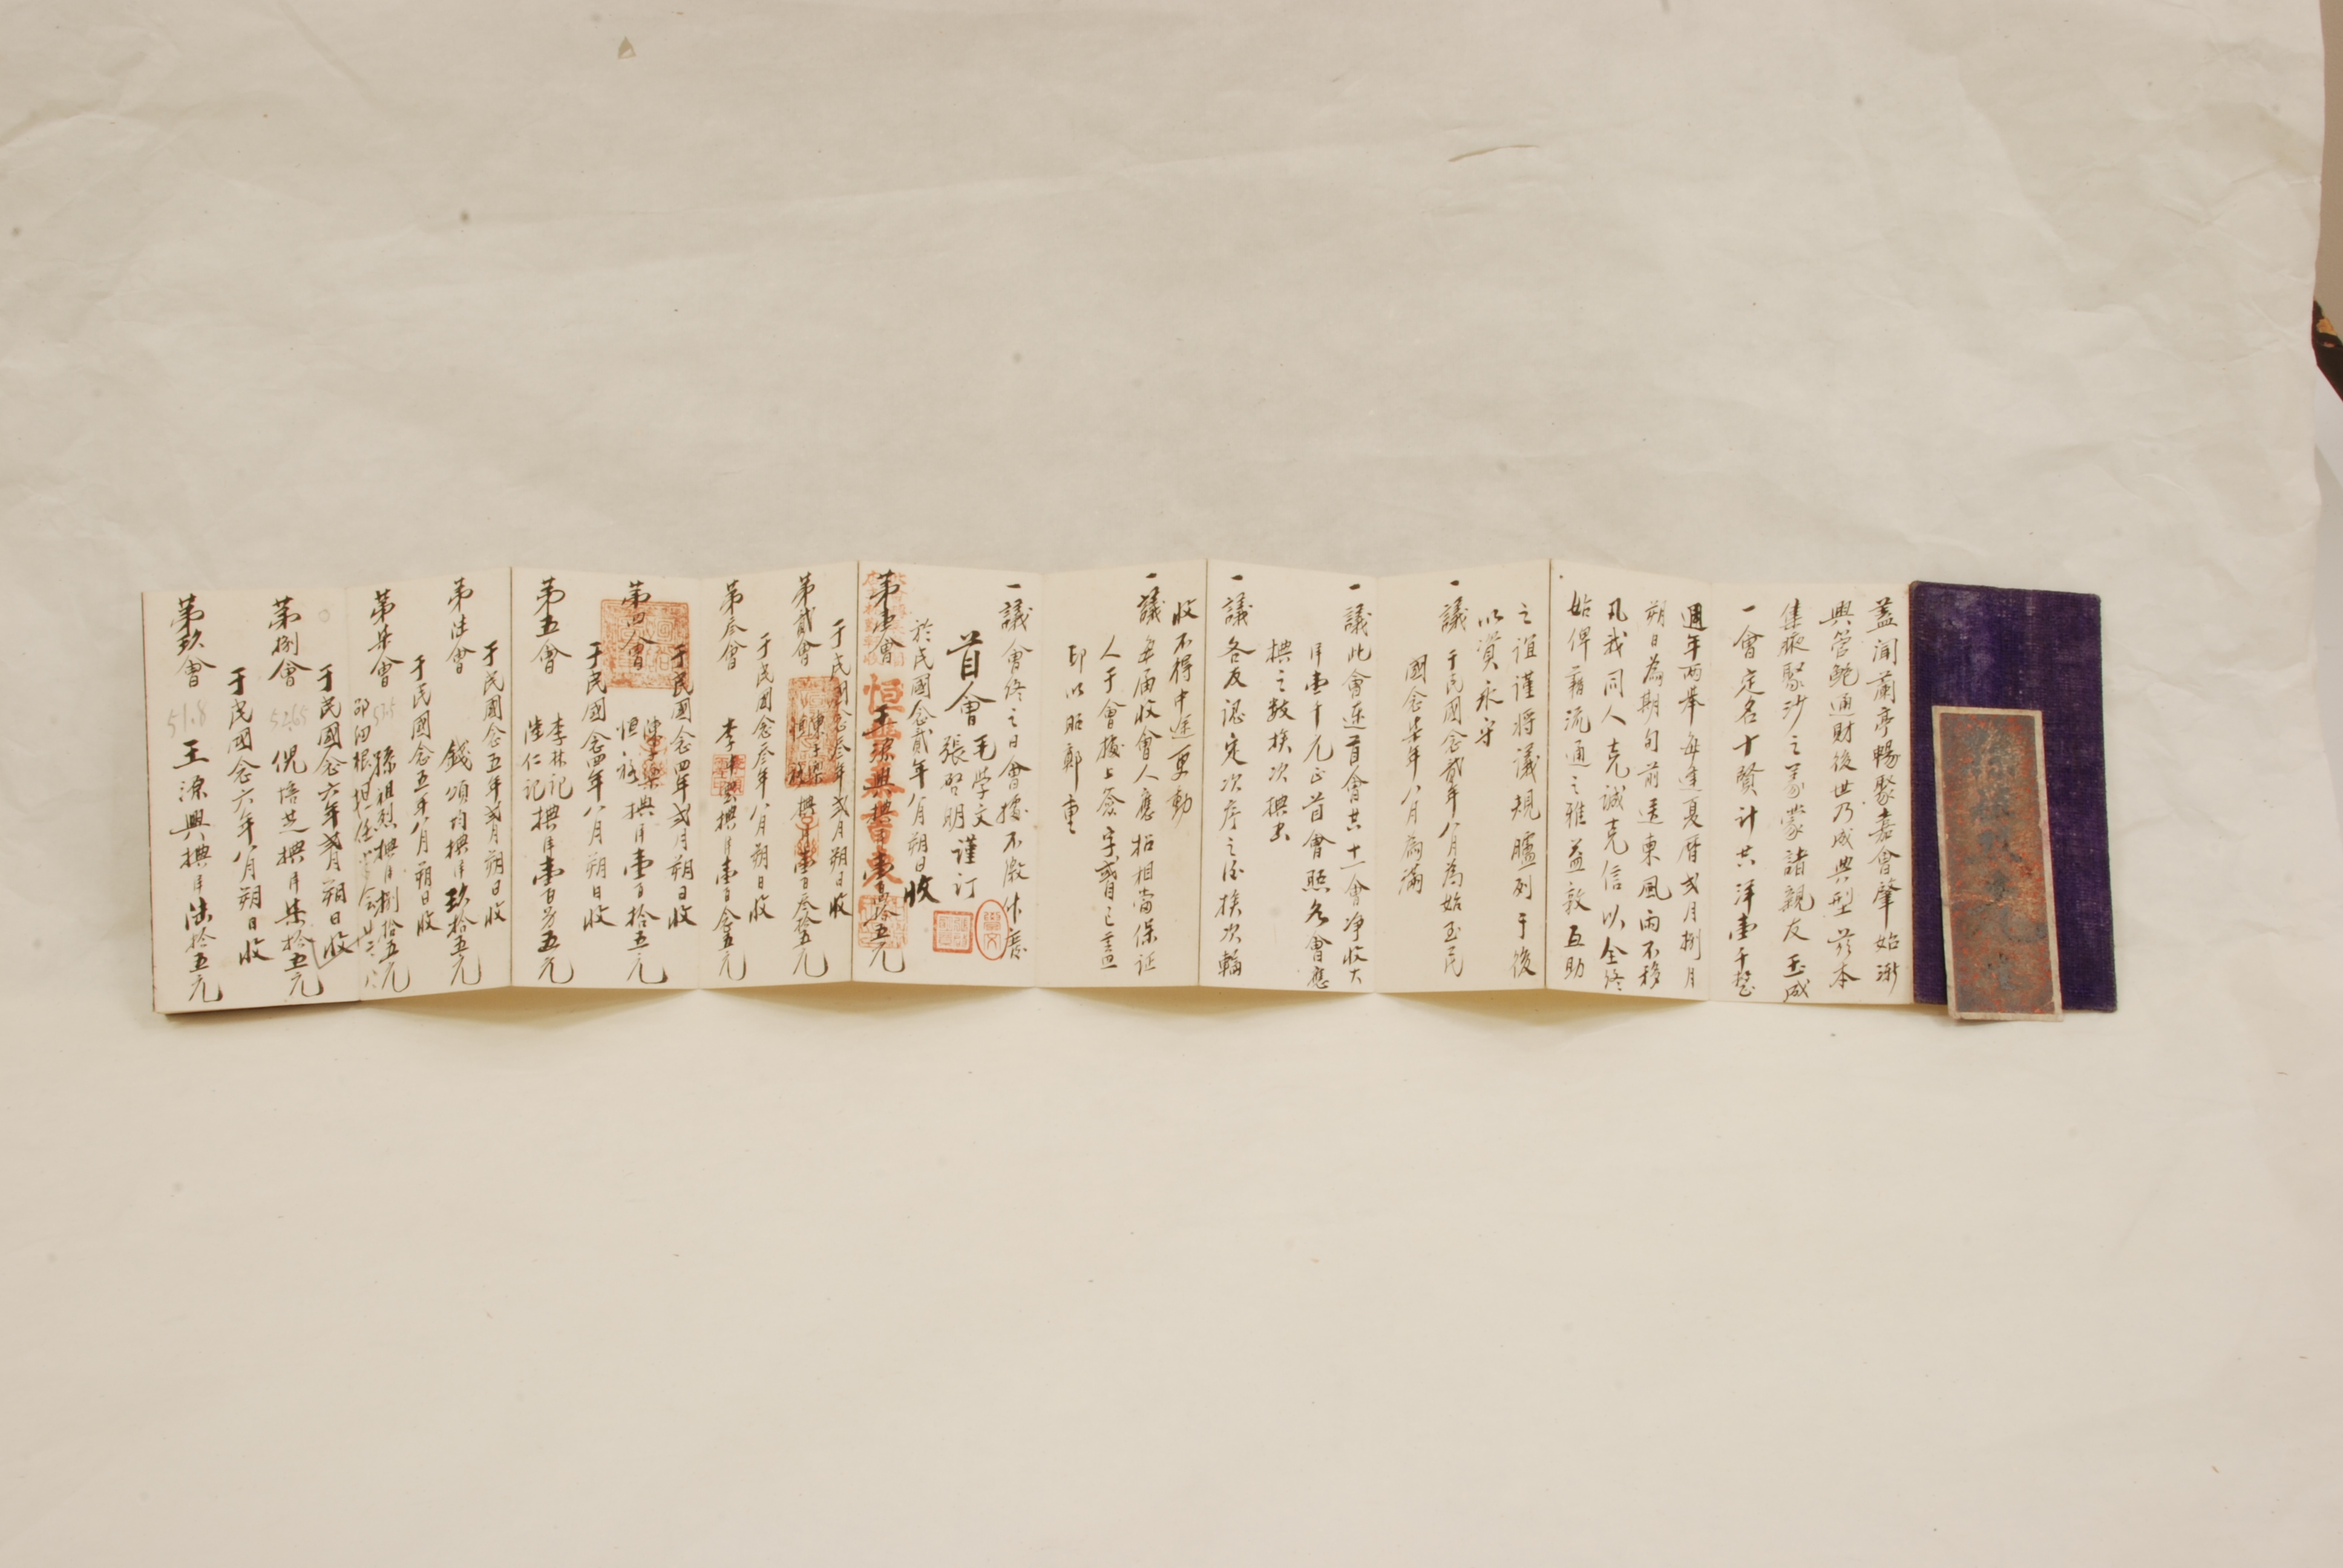 蓋聞蘭亭暢聚嘉會肇始漸
與管鮑通財後世乃成典型茲本
集腋聚沙之義蒙諸親友玉成
一會定名十賢計共洋壹千整
週年兩舉每逢夏曆弍月捌月
朔日為期旬前送柬風雨不移
凡我同人克誠克信以全終
始俾藉流通之雅益敦互助
之誼謹將議規臚列于後
以資永守
一議于民國念貳年八月為始至民
國念柒年八月為滿
一議此會連首會共十一會净收大
洋壹千元正首會照各會應
捵之數挨次捵出
一議各友認定次序之後挨次輪
收不得中途更動
一議每屆收會人應招相當保証
人于會據上簽字或自己蓋
印以昭鄭重
一議會終之日會據不繳作廢
首會
毛学文
張啓明
謹订
於民國念貳年八月朔日收
第壹會 王源興捵洋壹百零五元
于民國念叁年弍月朔日收
第貳會 捵洋壹百叁拾五元
于民國念叁年八月朔日收
第叁會 李 捵洋壹百念五元
于民國念四年弍月朔日收
第四會 捵洋壹百拾五元
于民國念四年八月朔日收
第五會 李林記 陸仁記 捵洋壹百另五元
于民國念五年弍月朔日收
第陸會 錢頌均捵洋玖拾五元
于民國念五年八月朔日收
第柒會 孫祖烈捵洋捌拾五元
于民國念六年弍月朔日收
第捌會 倪培芝捵洋柒拾五元
于民國念六年八月朔日收
第玖會 51.8 王源興捵洋陸拾五元